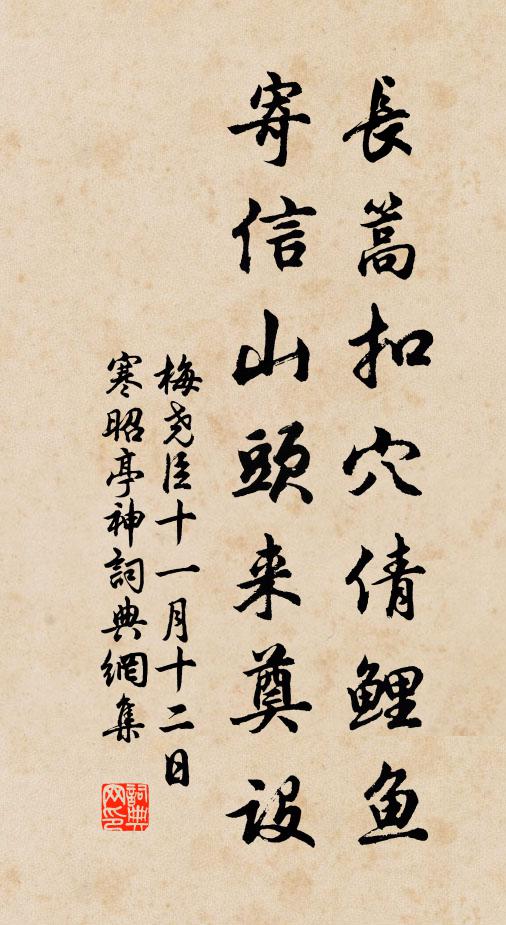 長篙扣穴倩鯉魚
寄信山頭来奠設
梅堯臣十一月十二日
寒昭亭神詞典網集
詞典
网印